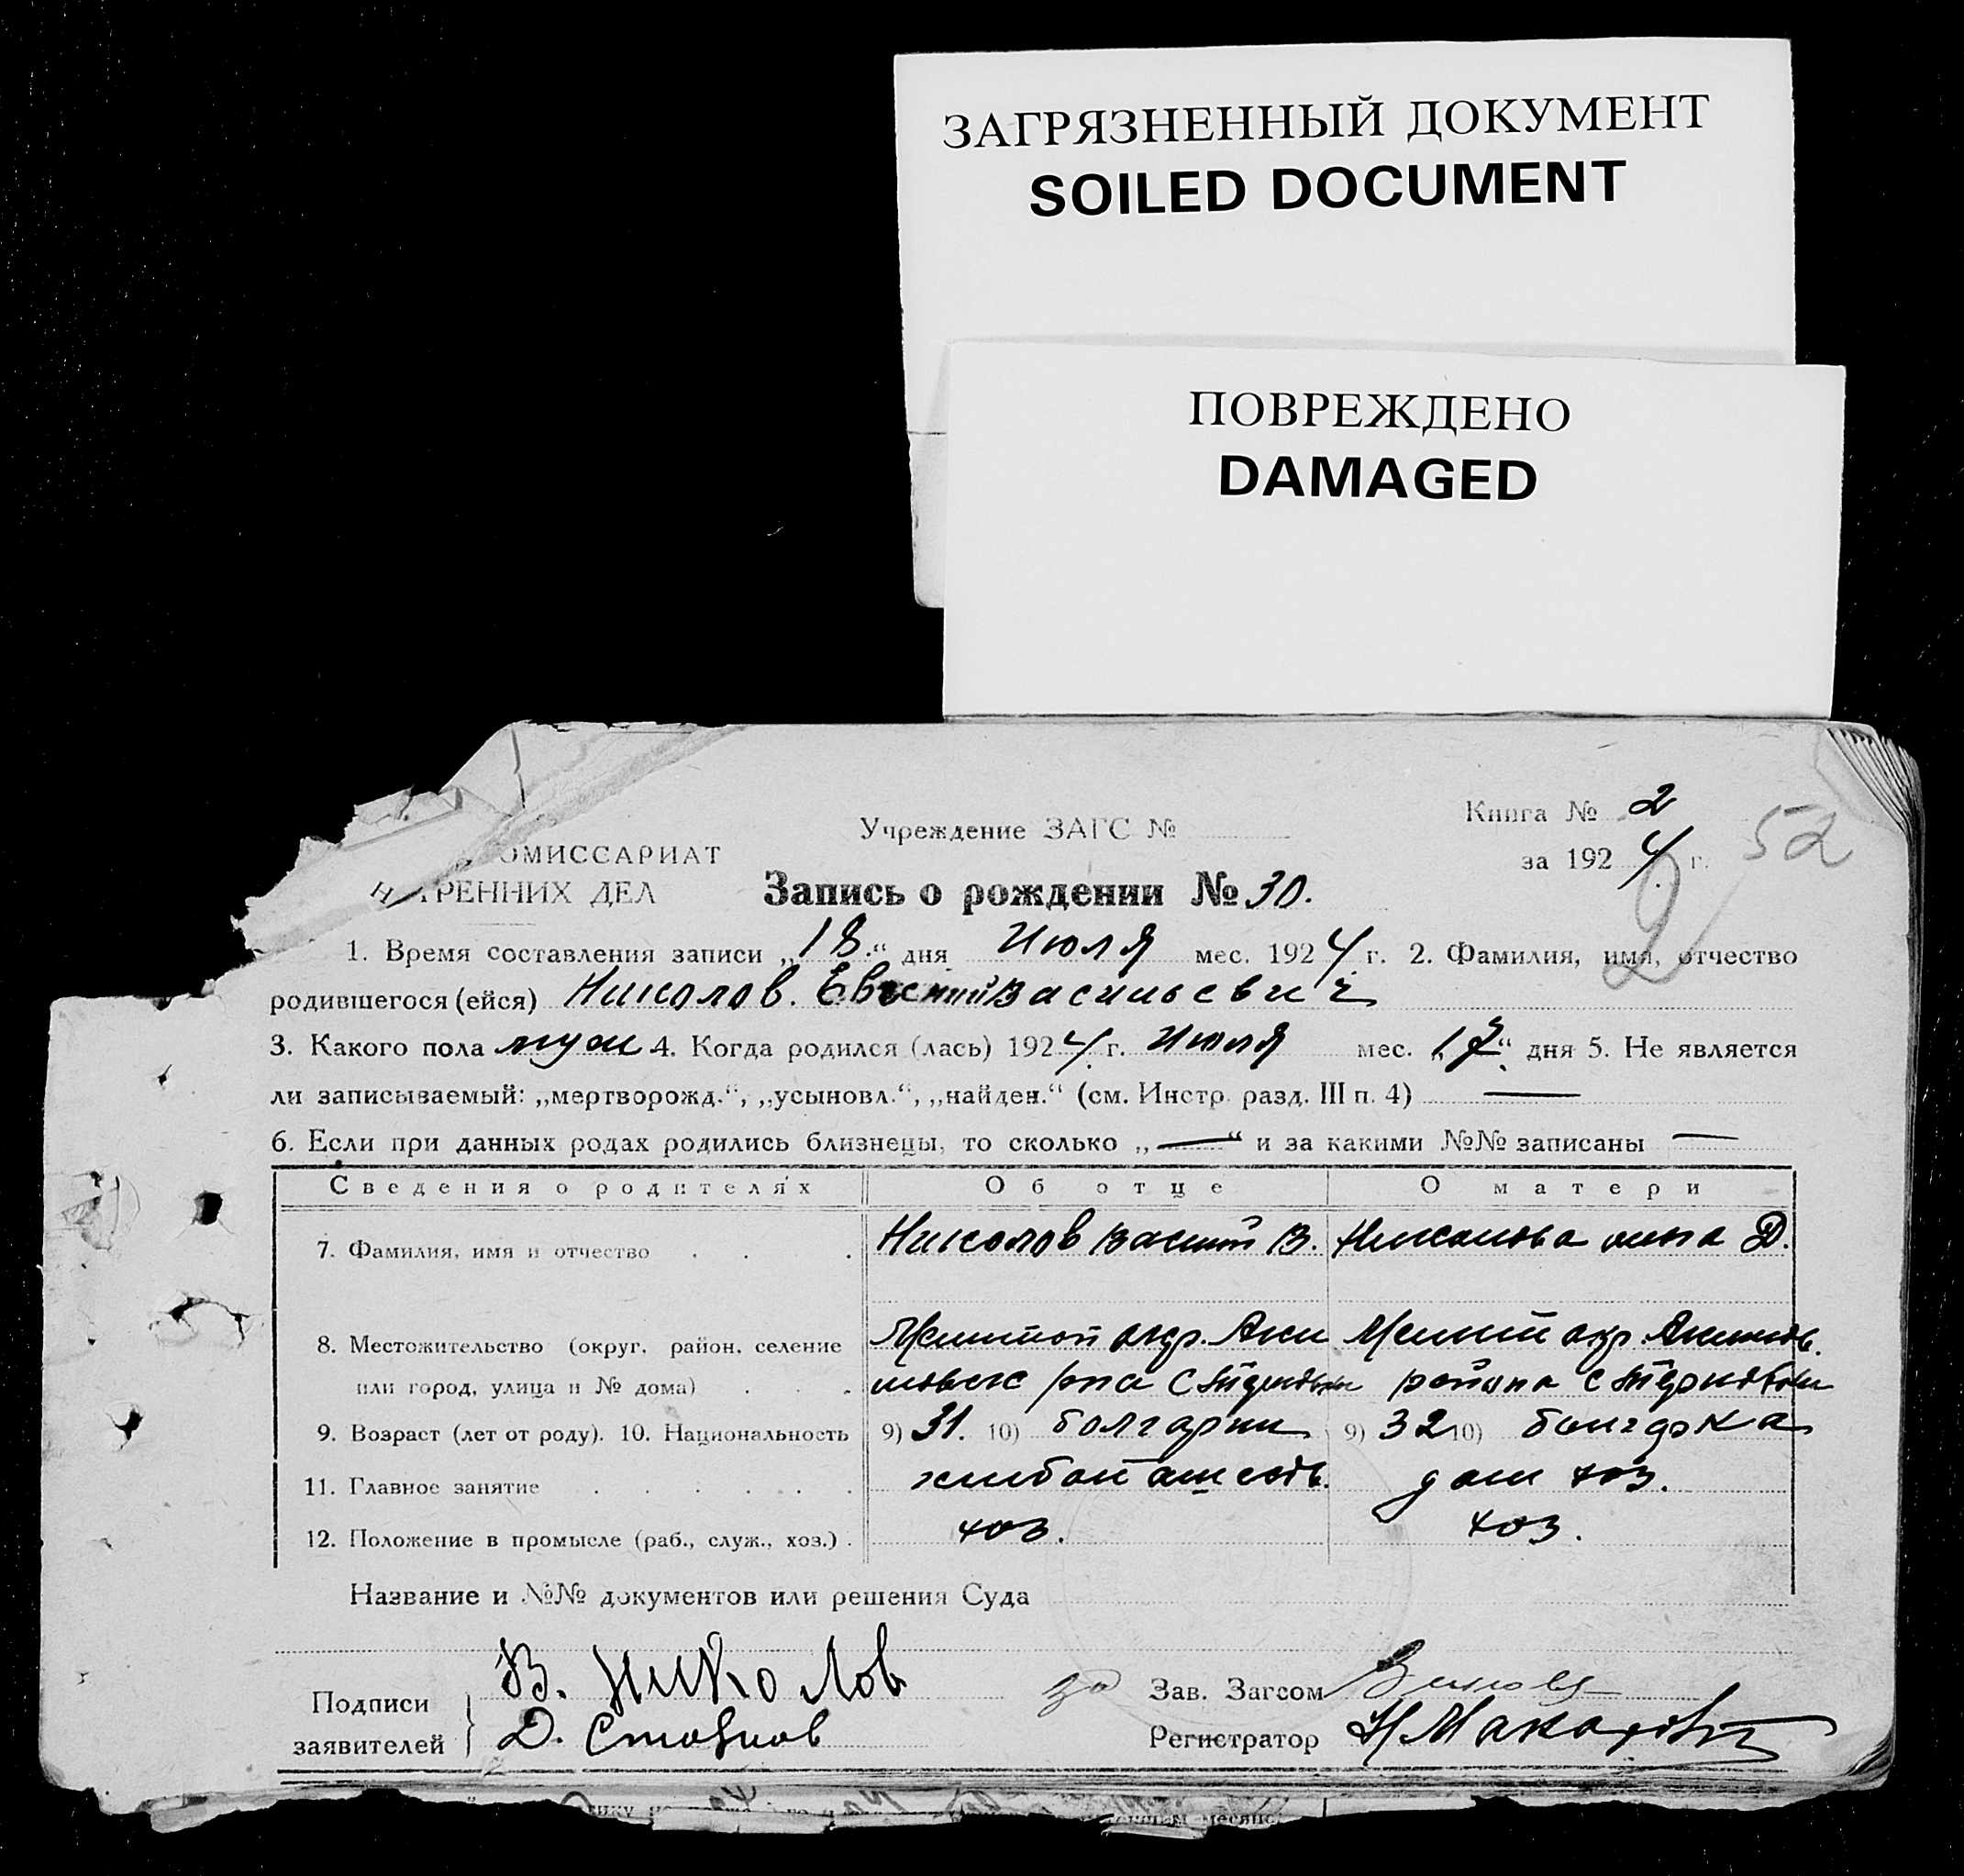 ЗАГРЯЗНЕННЫЙ ДОКУМЕНТ
SOILED DOCUMENT
ПОВРЕЖДЕНО
DAMAGED
Книга № 2
Учреждение ЗАГС №
за 1924 г.
52
ОМИССАРИАТ
РЕННИХ ДЕЛ
Запись о рождении № 30.
1. Время составления записи „18.“ дня Июля мес. 1924 г. 2. Фамилия, имя, отчество
родившегося (ейся) Николов. Васильевич
3. Какого пола муж 4. Когда родился (лась) 1924 г. Июля мес. „17“ дня 5. Не является
ли записываемый: „мертворожд.“, „усыновл.“, „найден.“ (см. Инстр. разд. III п. 4) —
6. Если при данных родах родились близнецы, то сколько „—“ и за какими №№ записаны —
Сведения о родителях Об отце О матери
7. Фамилия, имя и отчество . . . Николов Василий В. Николова Д.
8. Местожительство (округ, район, селение Мелитоп окр. Аки Мелит окр. Акимов.
или город, улица и № дома) . . . района с
9. Возраст (лет от роду). 10. Национальность 9) 31. 10) болгарин 9) 32 10) болгарка
11. Главное занятие . . . . . . дом хоз.
12. Положение в промысле (раб., служ., хоз.) . хоз. хоз.
Название и №№ документов или решения Суда
Подписи заявителей
В. Николов
Д. Стоянов
за Зав. Загсом
Регистратор